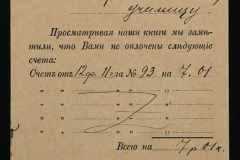 училищу
Просматривая наши книги мы замѣ-
тили, что Вами не оплочены слѣдующіе
счета:
Счетъ отъ 12 фе. 11 ода № 93 на 7.01
" " " " "
" " " " "
" " " " "
Всего на 7 р. 01 к.